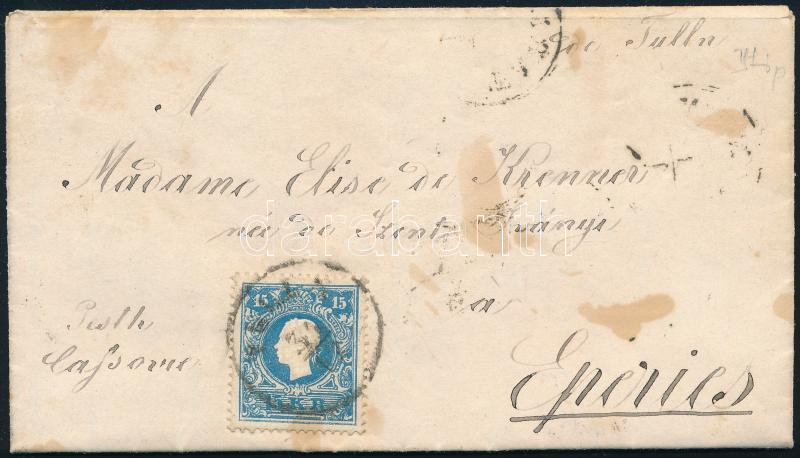 de Tulln
A
Madame Elise de Krenner
née de Szent Iványi
à
Eperies
Pesth
Cassovie
15 15
KR
darabanth